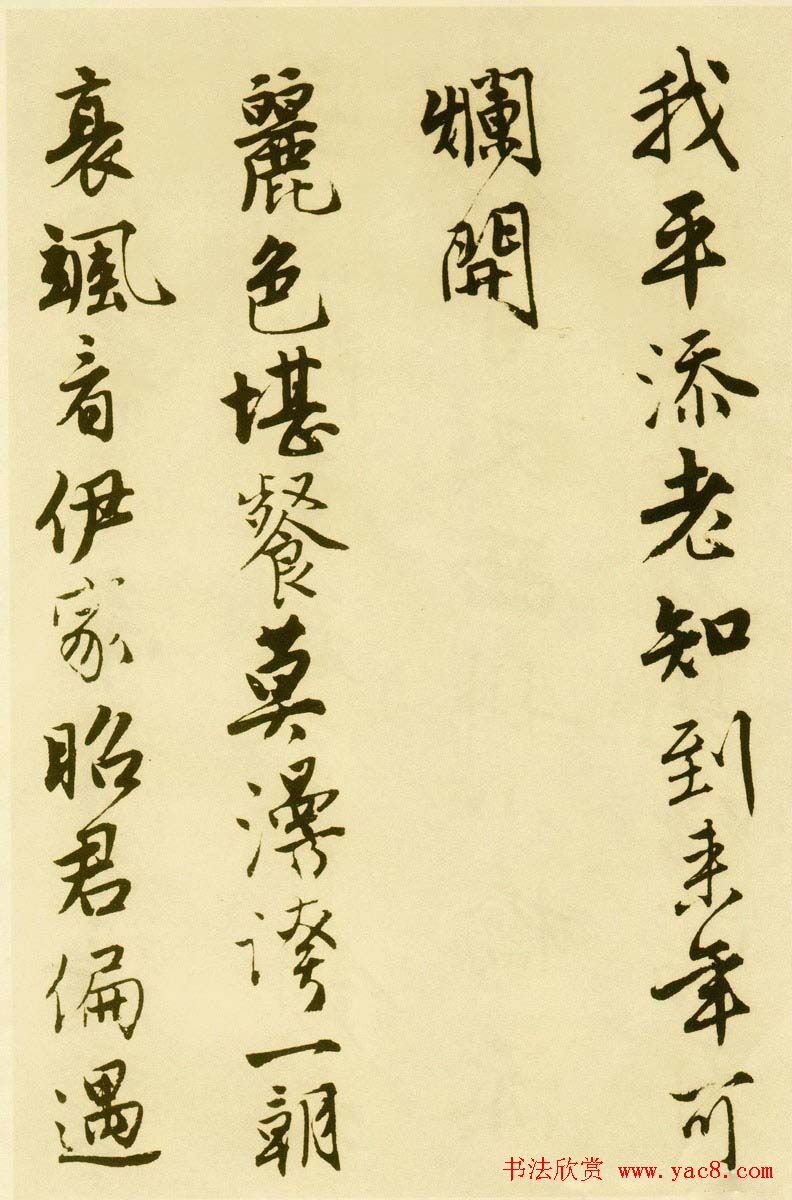 我平添老知到来年可
爛開
麗色堪餐莫漫誇一朝
衰颯看伊家昭君偏遇
书法欣赏 www.yac8.com